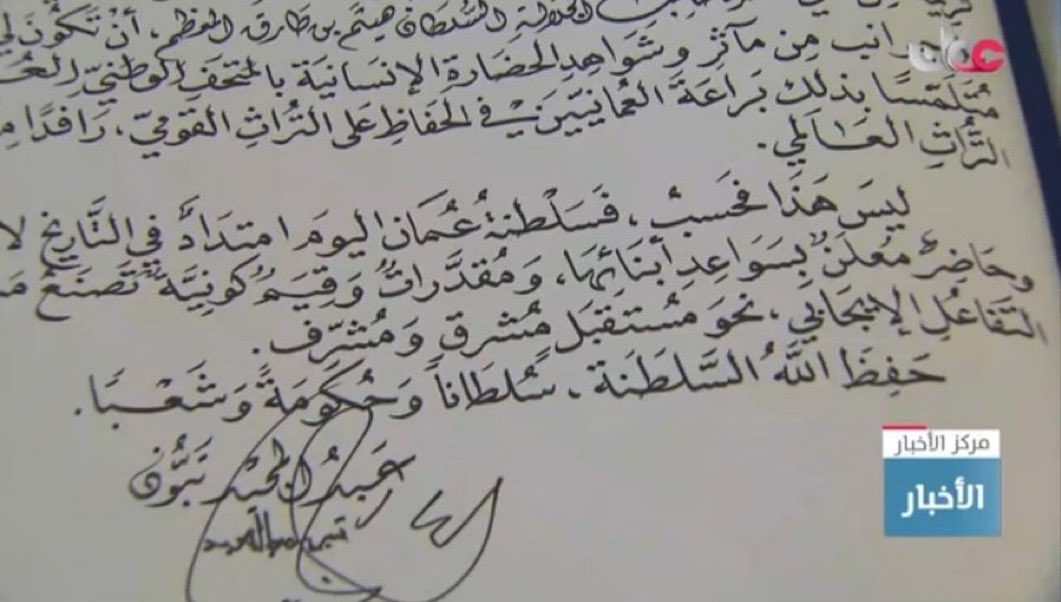 الجلالة السلطان هيثم بن طارق المعظم، أن تكون لي
جوانب من مآثر وشواهد الحضارة الإنسانية بالمتحف الوطني
متلمّسًا بذلك براعة العمانيين في الحفاظ على التراث القوميّ، رافدًا
التّراث العالمي.
ليس هذا فحسبُ، فسلطنة عُمان اليوم امتدادٌ في التّاريخ لا
وحاضرٌ معلنٌ بسواعد أبنائها، ومُقدَّراتٌ وقيمٌ كونيّةٌ تصنعُ
التّفاعل الإيجابي، نحو مستقبل مُشرق ومُشرّف.
حفظَ اللهُ السّلطنة، سُلطاناً وحُكومَةً وشَعْبًا.
عبد المجيد تبّون
عمان
مركز الأخبار
الأخبار